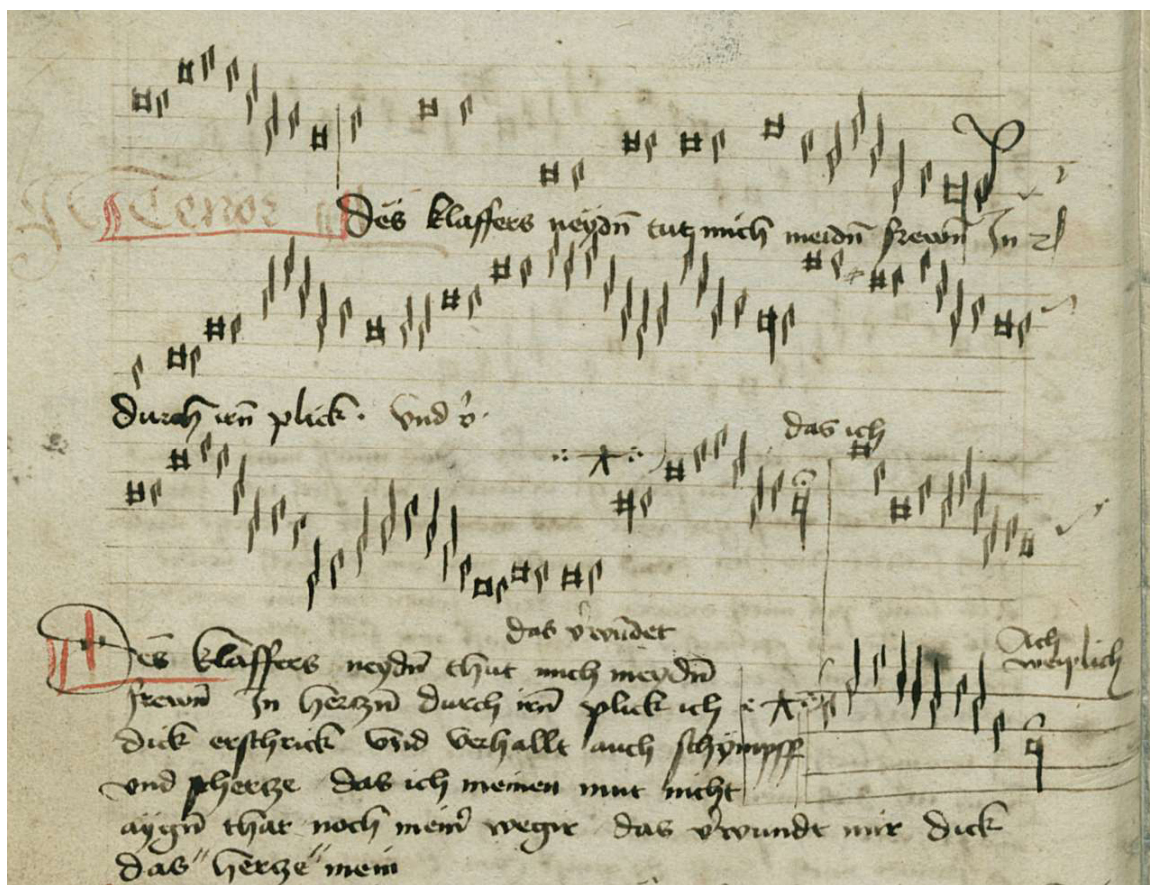 Tenor
Des klaffers neydn̄ tut mich meidn̄ frewn̄ In
durch irn̄ plick. vnd
das ich
das v̾wūdet
Ach
weiplich
Des klaffers neydn̄ thut mich meydn̄
frewn̄ In hertzn̄ durch irn̄ plick ich
dick erschrick vnd verhallt auch schympff
vnd schertze das ich meinen mut nicht
aygn̄ thar noch mein̾ wegir das v̾wundt mir dick
das hertze mein